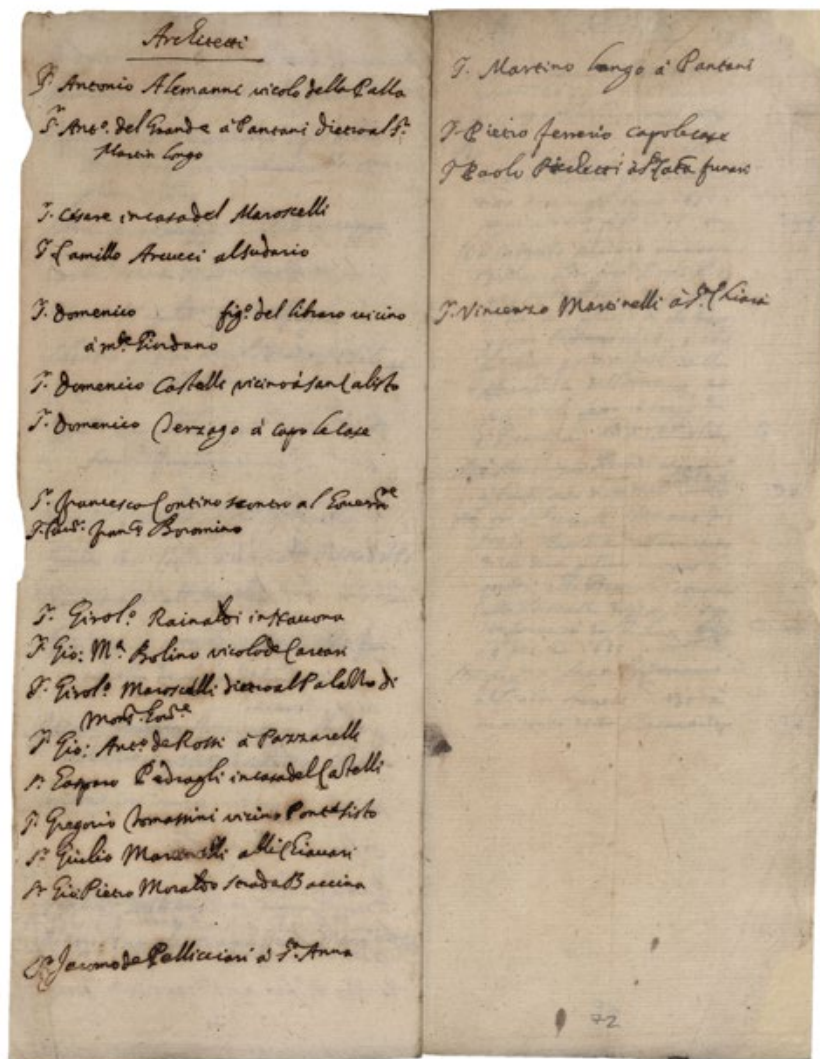 Architetti
Sr. Antonio Alemanni vicolo della Palla
Sr. Anto. del Grande à Pantani dietro al Sr.
Martin Longo
Sr. Cesare in casa del Maroscelli
Sr. Camillo Arcucci al Sudario
Sr. Domenico figo. del libraro vicino
à mte. Giordano
Sr. Domenico Castelli vicino à San Calisto
Sr. Domenico à capo le Case
Sr. Francesco Contino scontro al Governre
Sr. Cavr. Franco. Boromino
Sr. Girolo. Rainaldi in Navona
Sr. Gio: Ma. Bolino vicolo de Cartari
Sr. Girolo. Maroscelli dietro al Palazzo di
Monsr. Govre.
Sr. Gio: Anto. de Rossi à Pazzarelli
Sr. Gasparo Pedragli in casa del Castelli
Sr. Gregorio Tomassini vicino Ponte Sisto
Sr. Giulio Martinelli alli Chiavari
Sr. Gio: Pietro Moraldo strada Baccina
Sr. Jacomo de Pellicciari à St. Anna
Sr. Martino Longo à Pantani
Sr. Pietro Ferrerio capo le case
Sr. Paolo Picchetti à Sta. Cata. funari
Sr. Vincenzo Martinelli à Sta. Chiara
72